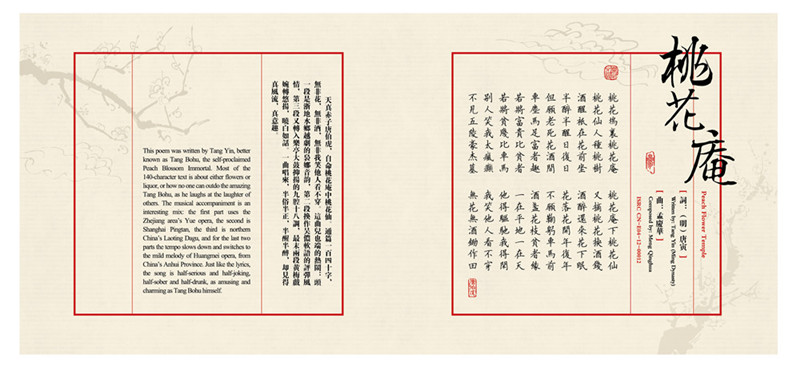 桃花庵
Peach Flower Temple
詞：（明）唐寅
Written by: Tang Yin (Ming Dynasty)
曲：孟慶華
Composed by: Meng Qinghua
ISRC CN-E04-12-00012
桃花塢裏桃花庵 桃花庵下桃花仙
桃花仙人種桃樹 又摘桃花換酒錢
酒醒秖在花前坐 酒醉還來花下眠
半醉半醒日復日 花落花開年復年
但願老死花酒間 不願鞠躬車馬前
車塵馬足富者趣 酒盞花枝貧者緣
若將富貴比貧者 一在平地一在天
若將貧賤比車馬 他得驅馳我得閒
別人笑我太瘋癲 我笑他人看不穿
不見五陵豪杰墓 無花無酒鋤作田
天真赤子唐伯虎，自命桃花庵中桃花仙，通篇一百四十字，
無非花，無非酒，無非我笑他人看不穿。這曲兒也端的熱鬧：頭
一段是浙地水鄉越劇的裊娜音韵，第二段換作吳儂軟語的評彈風
情，第三段又轉入樂亭大鼓抑揚的九腔十八調，最末兩段黃梅戲
婉轉悠揚，曉白如話。一曲唱來，半俗半正，半醒半醉，却見得
真風流，真意趣。
This poem was written by Tang Yin, better
known as Tang Bohu, the self-proclaimed
Peach Blossom Immortal. Most of the
140-character text is about either flowers or
liquor, or how no one can outdo the amazing
Tang Bohu, as he laughs at the laughter of
others. The musical accompaniment is an
interesting mix: the first part uses the
Zhejiang area's Yue opera, the second is
Shanghai Pingtan, the third is northern
China's Laoting Dagu, and for the last two
parts the tempo slows down and switches to
the mild melody of Huangmei opera, from
China's Anhui Province. Just like the lyrics,
the song is half-serious and half-joking,
half-sober and half-drunk, as amusing and
charming as Tang Bohu himself.